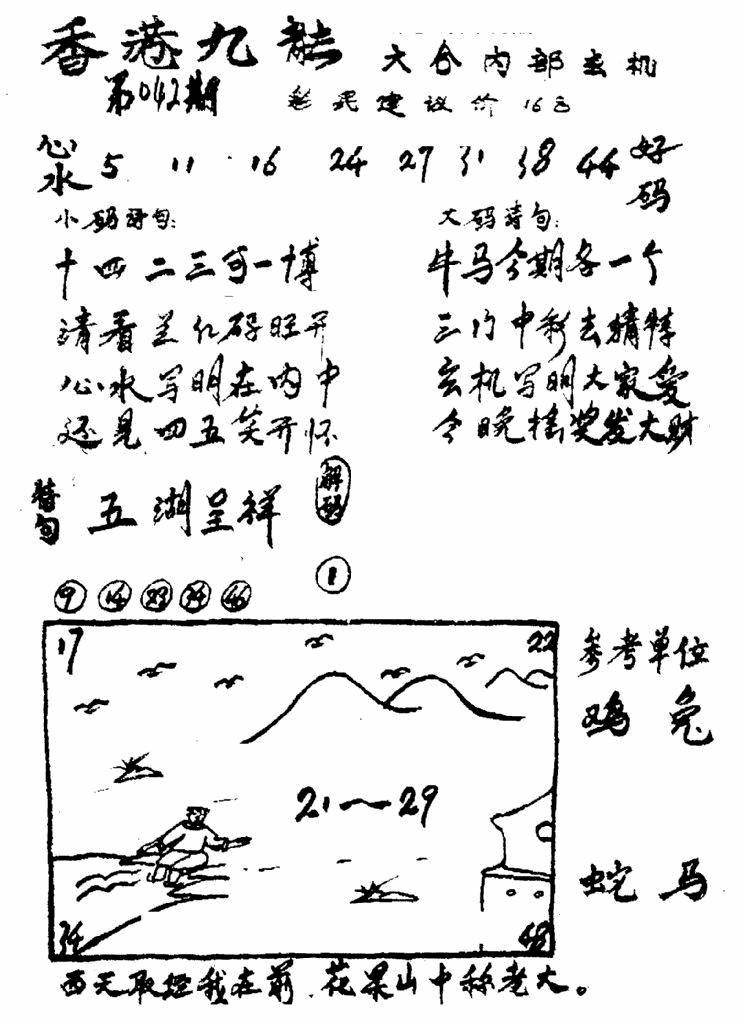 香港九龍 六合内部玄机
第042期 彩民建议价16元
心水 5 11 16 24 27 31 38 44 好码
小码诗句: 大码诗句:
十四二三可一十博 牛马今期各一个
请看 码旺开 三 中彩去猜特
心水写明在内中 玄机写明大家爱
还是四五笑开怀 今晚摇奖发大财
特句 五湖呈祥 解码
9 14 23 34 46 1
17 22 参考单位
鸡 兔
21〜29
蛇 马
34 48
西天取经我在前.花果山中称老大。